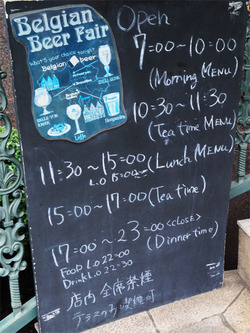 Belgian
Beer Fair
what's your choice tonight?
Belgian beer
Open
7:00~10:00
(Morning MENU)
10:30~11:30
(Tea time MENU)
11:30~15:00 (Lunch MENU)
L.O 15:00
15:00~17:00 (Tea time)
17:00~23:00 <CLOSE>
(Dinner time)
FOOD L.O 22:00
Drink L.O 22:30
店内 全席禁煙
テラスのみ 喫煙可